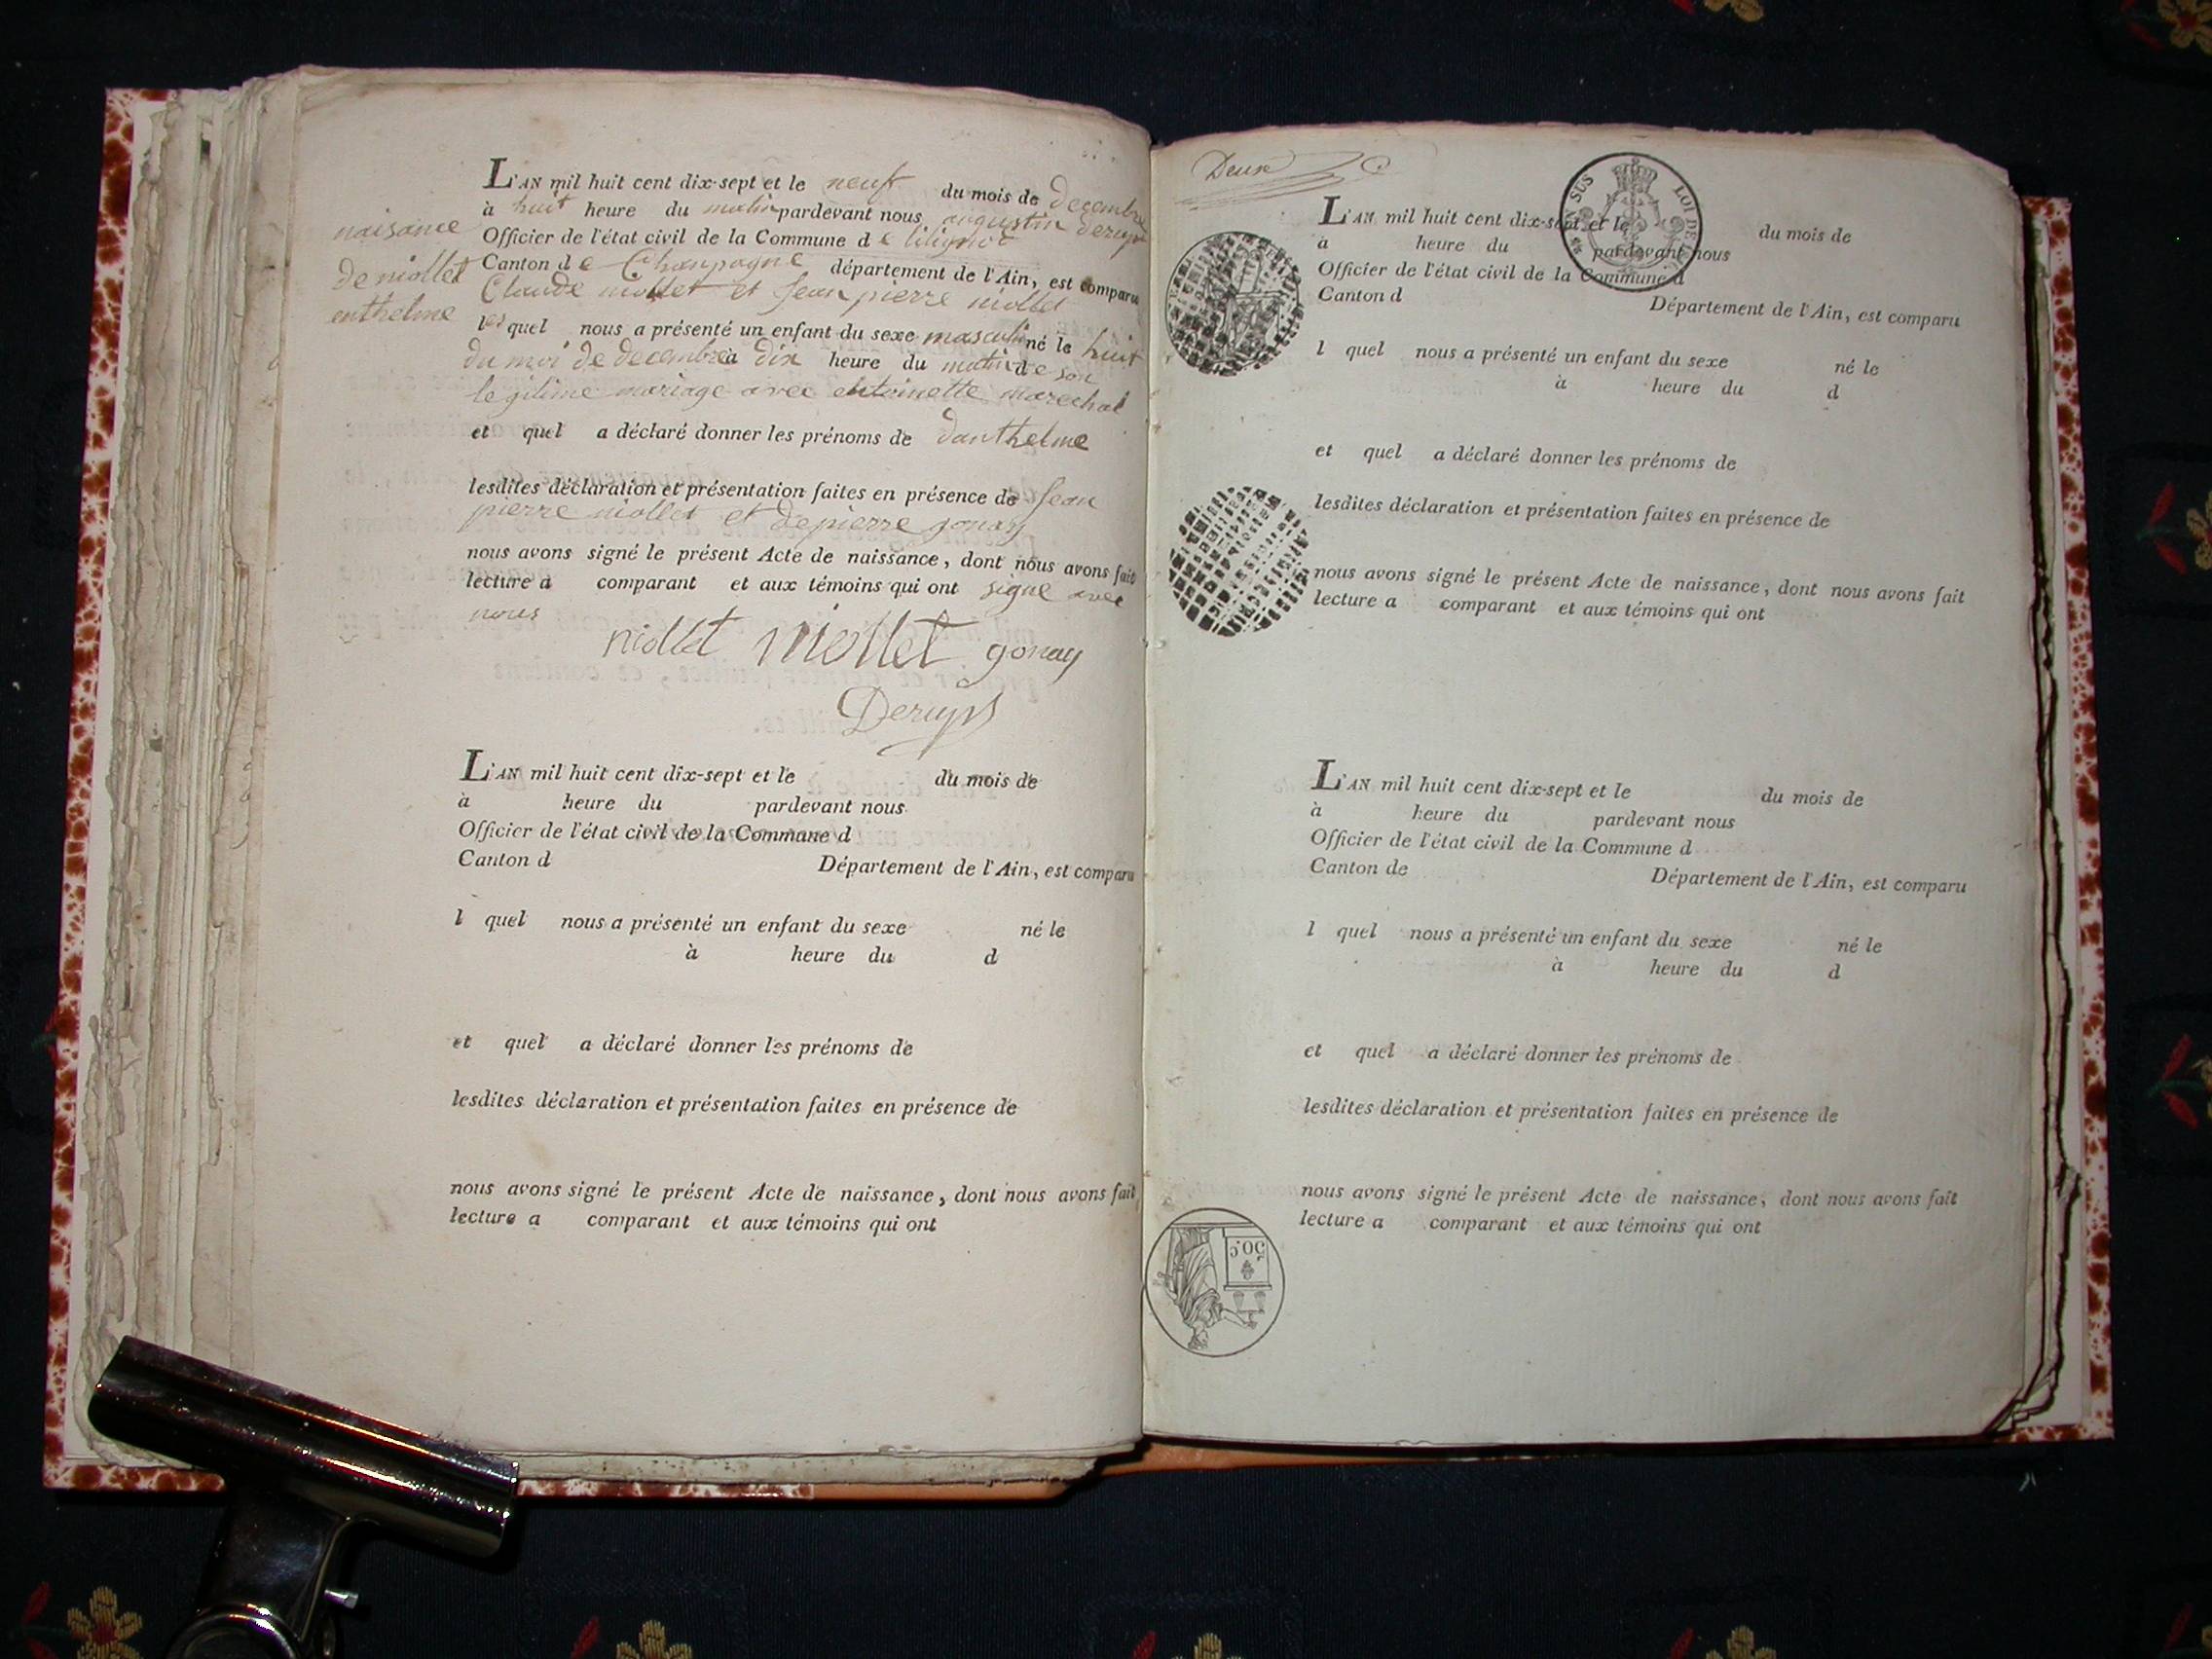 naisance
de niollet
enthelme
L'AN mil huit cent dix-sept et le neuf du mois de decembre
à huit heure du matin pardevant nous augustin deruyp
Officier de l'état civil de la Commune de lilignod
Canton de Champagne département de l'Ain, est comparu
Claude niollet et Jean pierre niollet
lesquel nous a présenté un enfant du sexe masculin né le huit
du moi de decembre à dix heure du matin de son
legitime mariage avec entoinette marechal
et quel a déclaré donner les prénoms de danthelme
lesdites déclaration et présentation faites en présence de Jean
pierre niollet et de pierre gonay
nous avons signé le présent Acte de naissance, dont nous avons fait
lecture à comparant et aux témoins qui ont signe avec
nous
niollet niollet gonay
L'AN mil huit cent dix-sept et le du mois de
à heure du pardevant nous
Officier de l'état civil de la Commune d
Canton d Département de l'Ain, est comparu
l quel nous a présenté un enfant du sexe né le
à heure du d
et quel a déclaré donner les prénoms de
lesdites déclaration et présentation faites en présence de
nous avons signé le présent Acte de naissance, dont nous avons fait
lecture a comparant et aux témoins qui ont
Deux
L'AN mil huit cent dix-sept et le du mois de
à heure du pardevant nous
Officier de l'état civil de la Commune d
Canton d Département de l'Ain, est comparu
l quel nous a présenté un enfant du sexe né le
à heure du d
et quel a déclaré donner les prénoms de
lesdites déclaration et présentation faites en présence de
nous avons signé le présent Acte de naissance, dont nous avons fait
lecture a comparant et aux témoins qui ont
L'AN mil huit cent dix-sept et le du mois de
à heure du pardevant nous
Officier de l'état civil de la Commune d
Canton de Département de l'Ain, est comparu
l quel nous a présenté un enfant du sexe né le
à heure du d
et quel a déclaré donner les prénoms de
lesdites déclaration et présentation faites en présence de
nous avons signé le présent Acte de naissance, dont nous avons fait
lecture a comparant et aux témoins qui ont
50.c